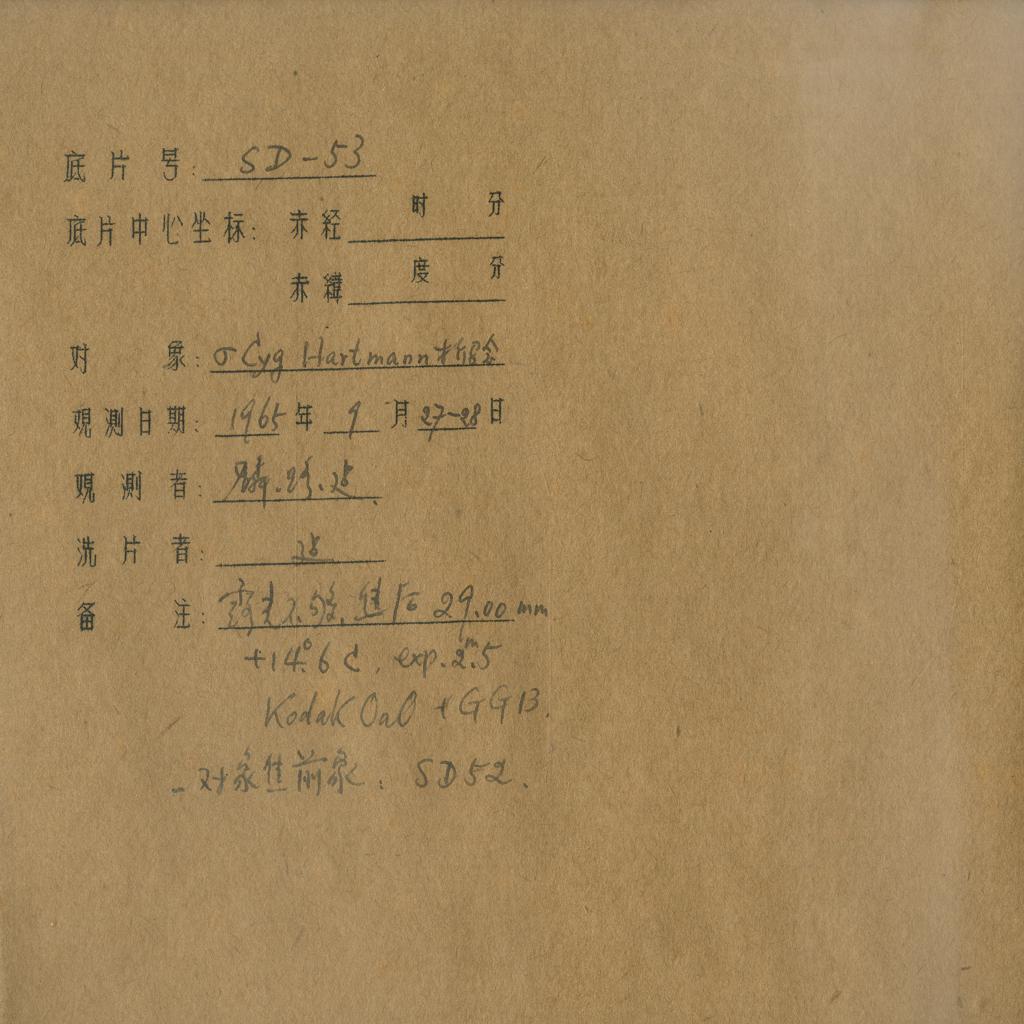 底片号: SD-53
底片中心坐标: 赤经 时 分
赤緯 度 分
对象: σ Cyg Hartmann
观测日期: 1965 年 9 月 27-28 日
观测者:
洗片者:
备注: 露光不够. 焦后 29.00 mm
+14°.6 C, exp. 2ᵐ.5
Kodak OaO + GG13.
对象焦前象: SD52.